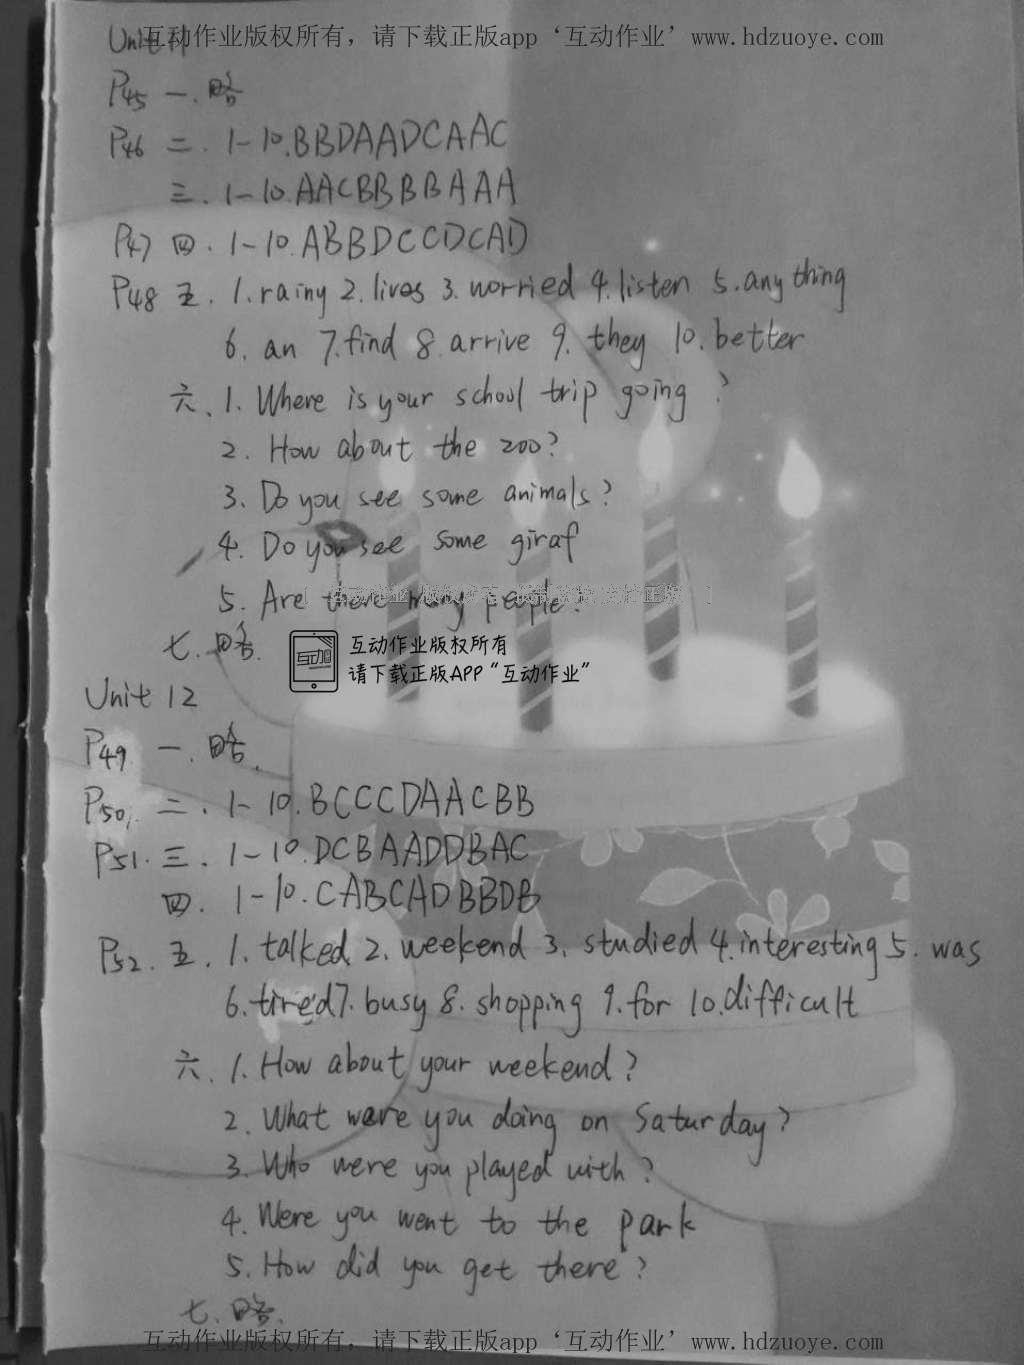 互动作业版权所有，请下载正版app‘互动作业’www.hdzuoye.com
Unit 11
P45 一. 略
P46 二. 1-10.BBDAADCAAC
三. 1-10.AACBBBBAAA
P47 四. 1-10.ABBDCCDCAD
P48 五. 1.rainy 2.lives 3.worried 4.listen 5.anything
6. an 7.find 8.arrive 9. they 10.better
六、1. Where is your school trip going ?
2. How about the zoo?
3. Do you see some animals?
4. Do you see some giraf
5. Are there many people?
七. 略.
互动作业版权所有
请下载正版APP“互动作业”
Unit 12
P49 一. 略.
P50. 二. 1-10.BCCCDAACBB
P51. 三. 1-10.DCBAADDBAC
四. 1-10.CABCADBBDB
P52. 五. 1. talked 2. weekend 3. studied 4.interesting 5. was
6.tired 7. busy 8. shopping 9.for 10.difficult
六. 1. How about your weekend?
2. What were you doing on Saturday?
3. Who were you played with?
4. Were you went to the park
5. How did you get there?
七. 略.
互动作业版权所有，请下载正版app‘互动作业’www.hdzuoye.com